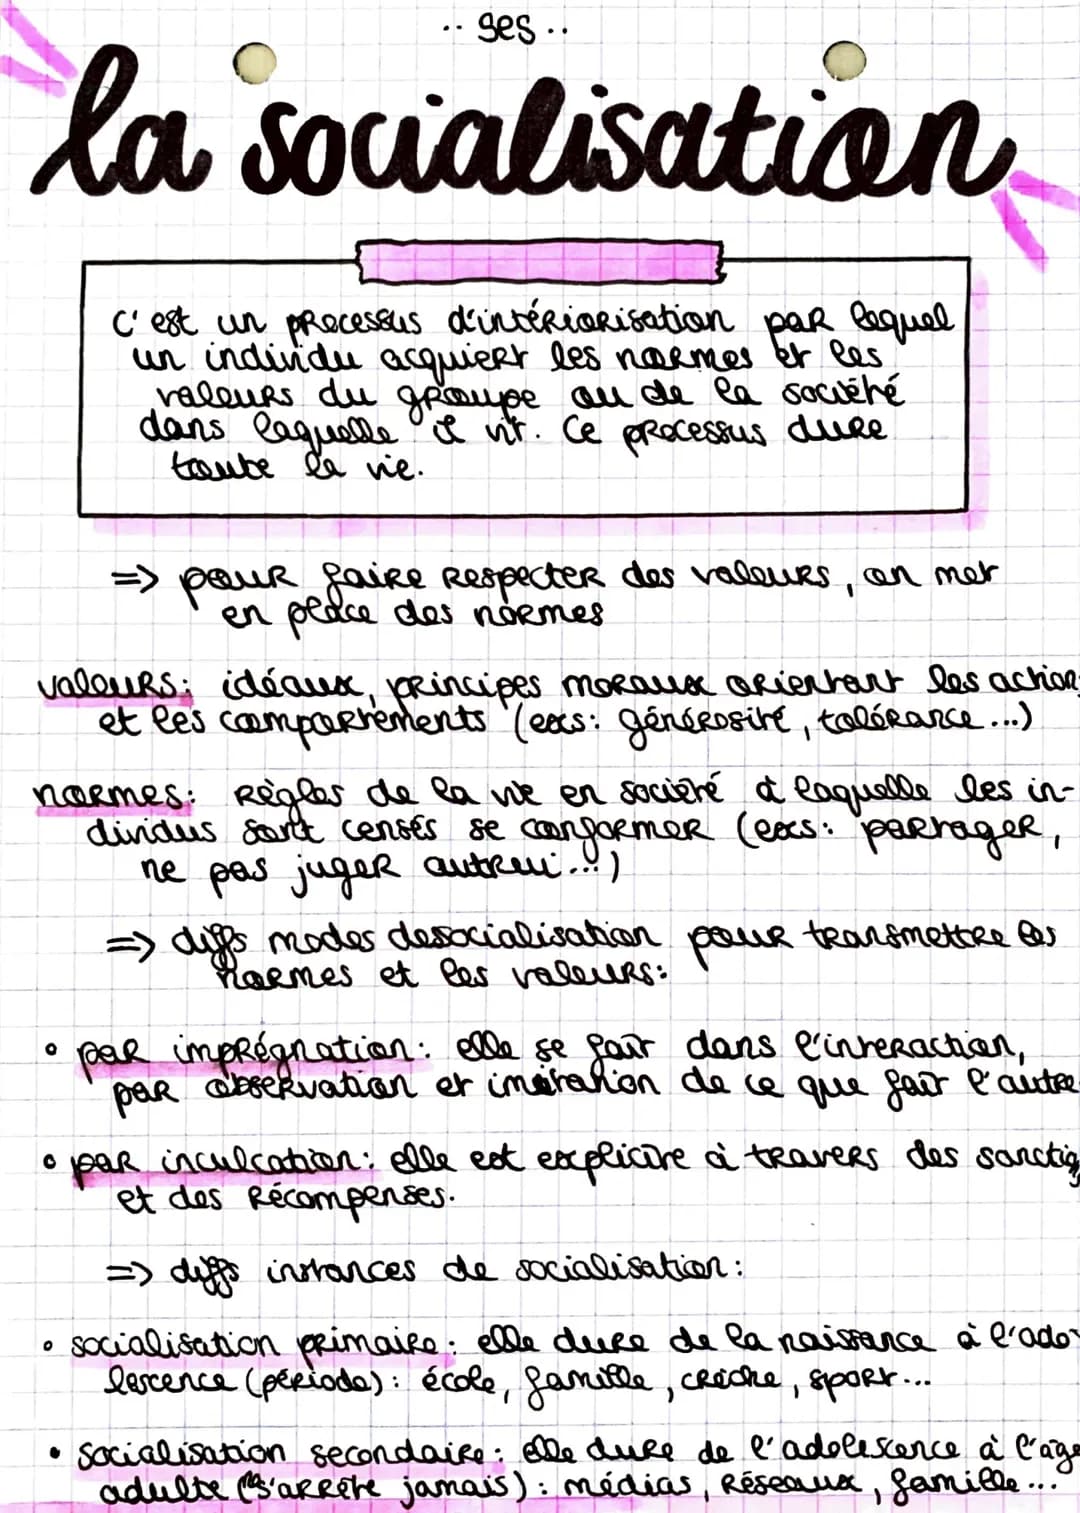 .. ses ..
la socialisation
C'est un processus d'intériorisation par lequel
un individu acquiert les normes et les
valeurs du groupe ou de la société
dans laquelle il vit. Ce processus dure
toute la vie.
=> pour faire respecter des valeurs, on met
en place des normes
valeurs: idéaux, principes moraux orientant les action
et les comportements (exs: générosité, tolérance...)
normes: Règles de la vie en société à laquelle les in-
dividus sont censés se conformer (exs: partager,
ne pas juger autrui...)
=> diffs modes de socialisation pour transmettre les
normes et les valeurs:
• par imprégnation: elle se fait dans l'interaction,
par observation et imitation de ce que fait l'autre
• par inculcation: elle est explicite à travers des sanctio
et des Récompenses.
=> diffs instances de socialisation:
• socialisation primaire: elle dure de la naissance à l'ado-
lescence (période): école, famille, crèche, sport...
• socialisation secondaire: elle dure de l'adolescence à l'âge
adulte (s'arrête jamais): médias, Réseaux, famille...